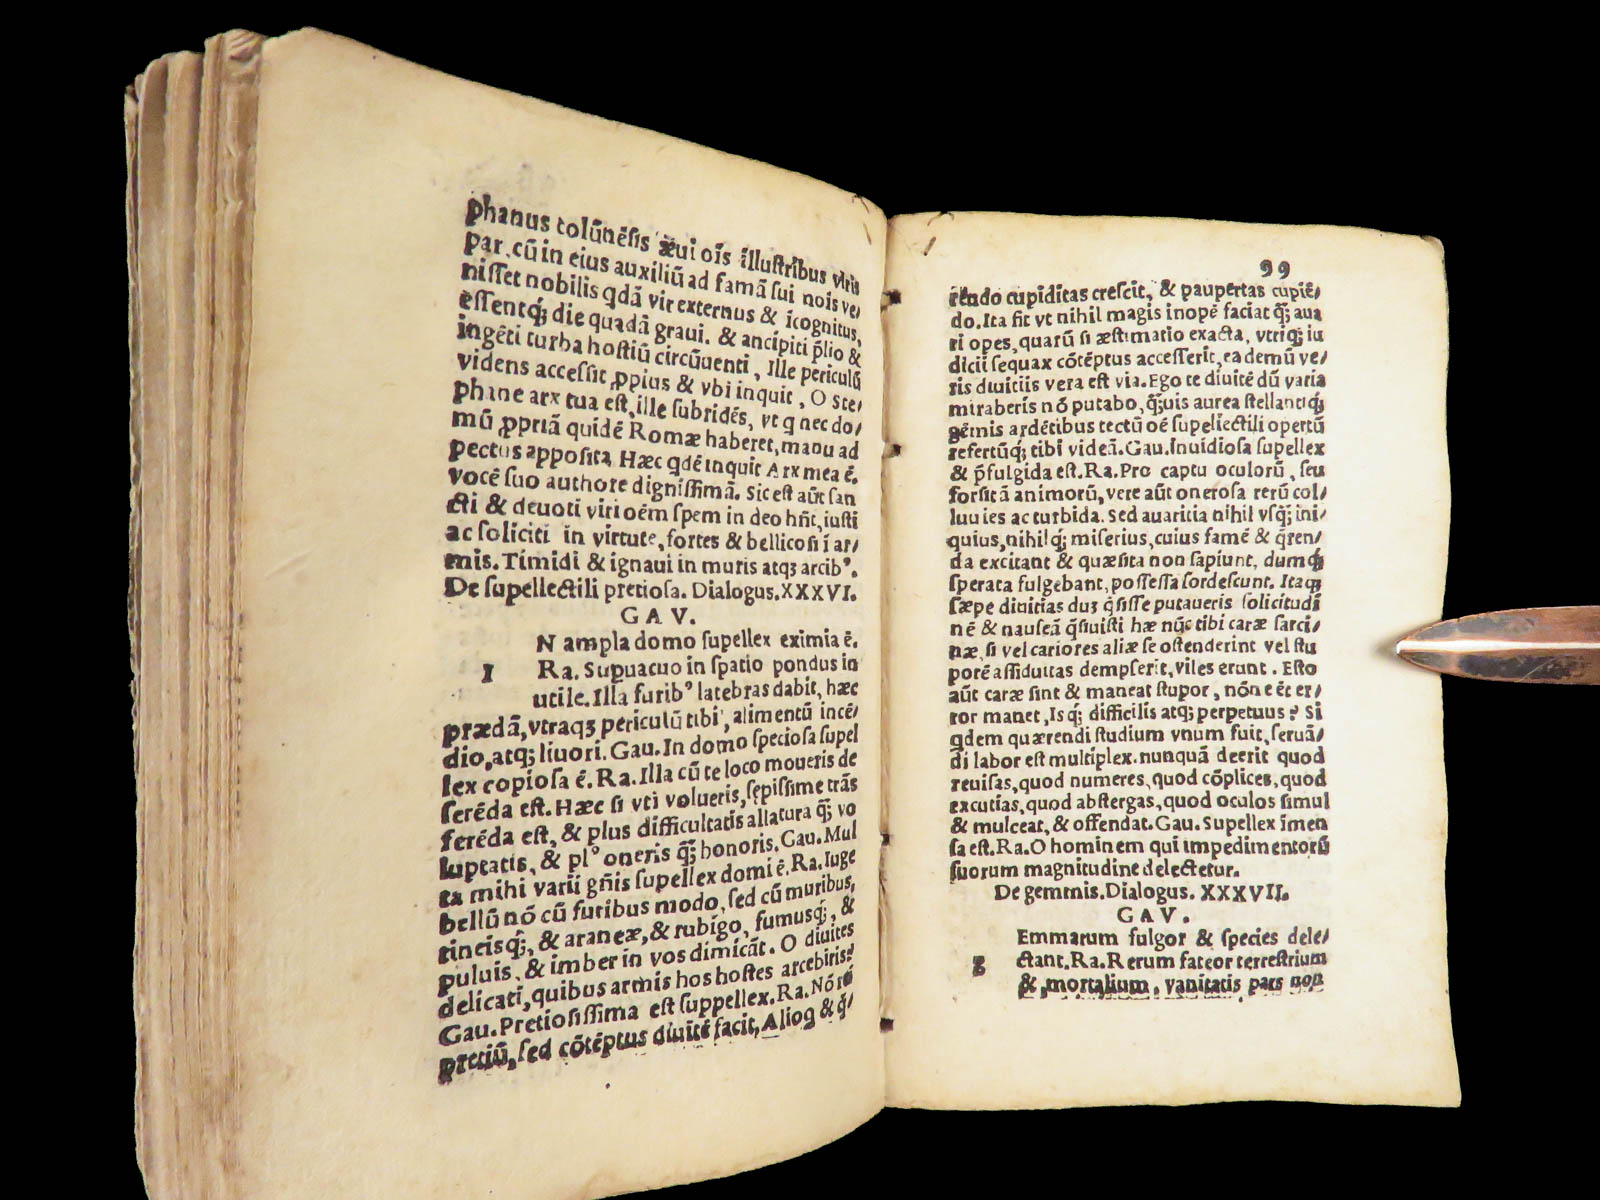 phanus colūnēsis æui oīs illustribus viris
par, cū in eius auxiliū ad famā sui nois ve/
nisset nobilis qdā vir externus & icognitus,
essentq; die quadā graui. & ancipiti p̄lio &
ingēti turba hostiū circūuenti, Ille periculū
videns accessit ꝓpius & vbi inquit, O Ste/
phane arx tua est, ille subridēs, vt q nec do/
mū ꝓpriā quidē Romæ haberet, manu ad
pectus apposita Hæc qdē inquit Arx mea ē.
vocē suo authore dignissimā. Sic est aūt san
cti & deuoti viri oēm spem in deo hn̄t, iusti
ac soliciti in virtute, fortes & bellicosi ī ar/
mis. Timidi & ignaui in muris atqꝫ arcibꝰ.
De supellectili pretiosa. Dialogus. XXXVI.
GAV.
N ampla domo supellex eximia ē.
I Ra. Supuacuo in spatio pondus in
utile. Illa furibꝰ latebras dabit, hæc
prædā, vtraqꝫ periculū tibi, alimentū incē/
dio, atq; liuori. Gau. In domo speciosa supel
lex copiosa ē. Ra. Illa cū te loco moueris de
serēda est. Hæc si vti volueris, sępissime trās
ferēda est, & plus difficultatis allatura q̄; vo
luptatis, & plꝰ oneris q̄; honoris. Gau. Mul
ta mihi varii gn̄is supellex domi ē. Ra. Iuge
bellū nō cū furibus modo, sed cū muribus,
tineisq;, & araneæ, & rubigo, fumusq;, &
puluis, & imber in vos dimicāt. O diuites
delicati, quibus armis hos hostes arcebiris?
Gau. Pretiosissima est suppellex. Ra. Nō rei
pretiū, sed cōtēptus diuitē facit, Alioq & q̄/
99
rendo cupiditas crescit, & paupertas cupiē/
do. Ita fit vt nihil magis inopē faciat q̄; aua
ri opes, quarū si æstimatio exacta, vtriq; iu
dicii sequax cōtēptus accesserit, ea demū ve/
ris diuitiis vera est via. Ego te diuitē dū varia
miraberis nō putabo, q̄;uis aurea stellantiq;
gēmis ardētibus tectū oē supellectili opertū
refertūq; tibi videā. Gau. Inuidiosa supellex
& p̄fulgida est. Ra. Pro captu oculorū, seu
forsitā animorū, vere aūt onerosa rerū col/
luuies ac turbida. Sed auaritia nihil vsq; ini/
quius, nihil q; miserius, cuius famē & q̄ren/
da excitant & quæsita non sapiunt, dumq;
sperata fulgebant, possessa sordescunt. Itaq;
sæpe diuitias duꝫ q̄sisse putaueris solicitudi
nē & nauseā q̄siuisti hæ nūc tibi caræ sarci/
næ, si vel cariores aliæ se ostenderint vel stu
porē assiduitas dempserit, viles erunt. Esto
aūt caræ sint & maneat stupor, nōne ēt er/
ror manet, Isq; difficilis atq; perpetuus? Si
qdem quærendi studium vnum fuit, seruā/
di labor est multiplex. nunquā deerit quod
reuisas, quod numeres, quod cōplices, quod
excutias, quod abstergas, quod oculos simul
& mulceat, & offendat. Gau. Supellex īmen
sa est. Ra. O hominem qui impedimentorū
suorum magnitudine delectetur.
De gemmis. Dialogus. XXXVII.
GAV.
Emmarum fulgor & species dele/
g ctant. Ra. Rerum fateor terrestrium
& mortalium, vanitatis pars non